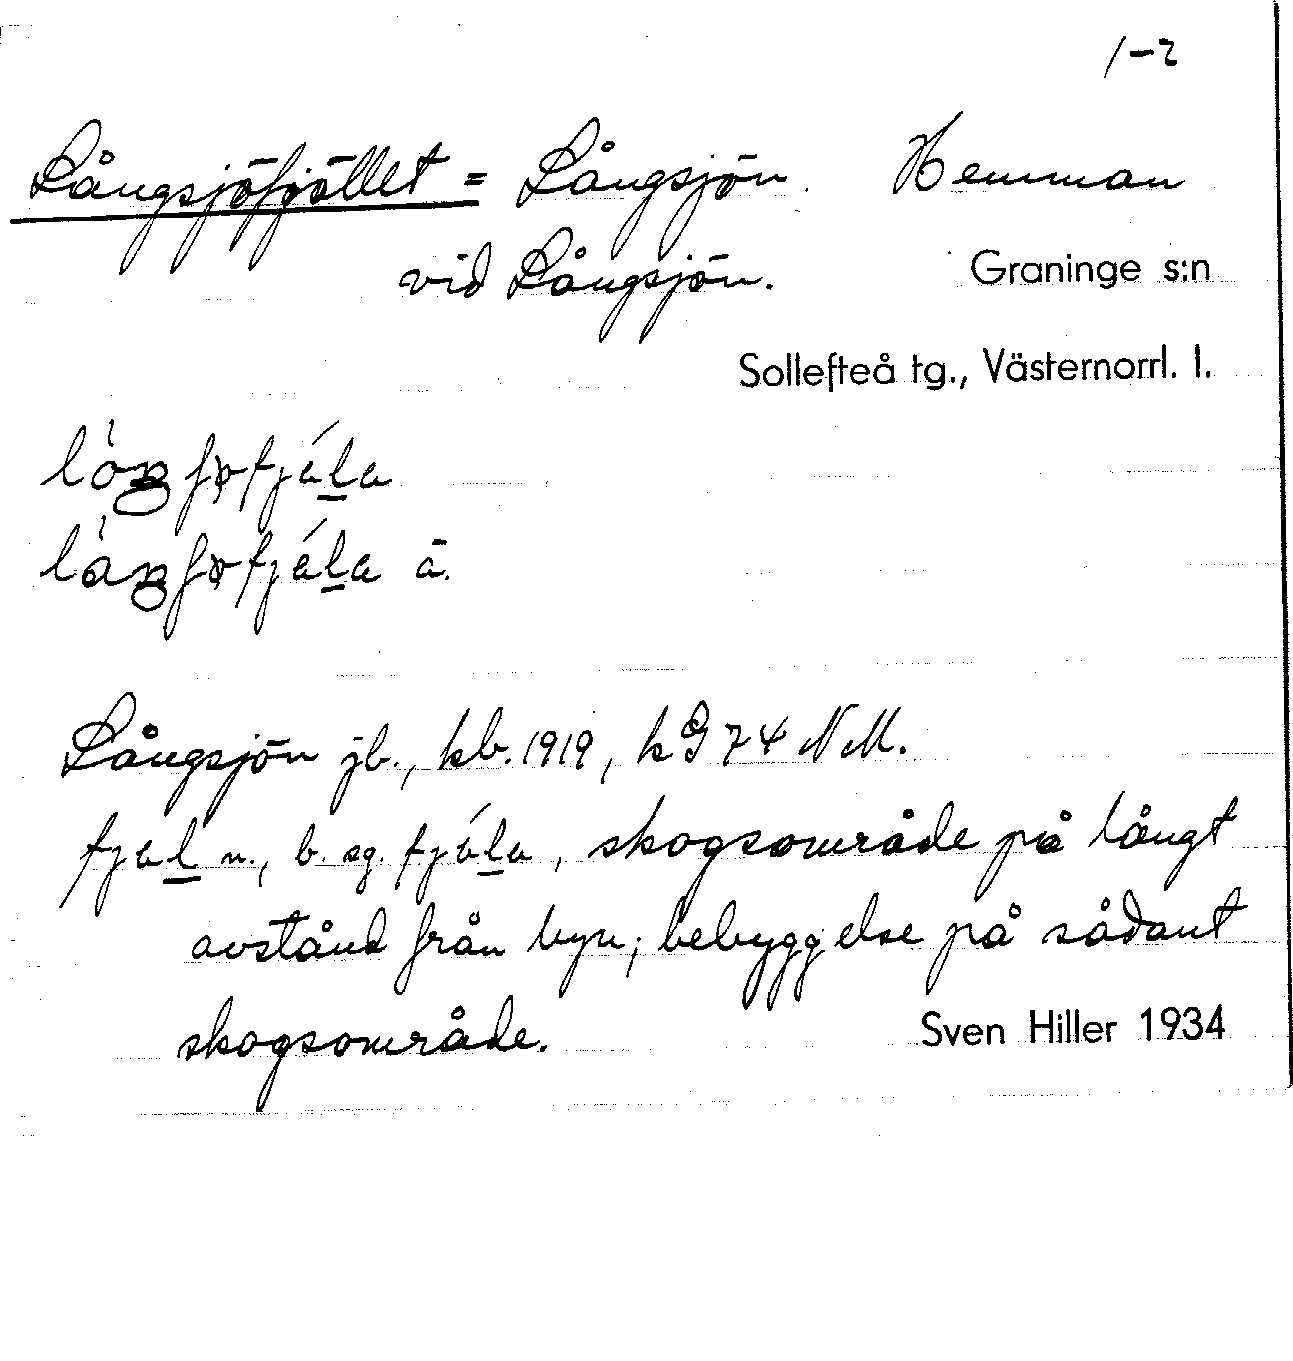 1-2
Långsjöfjället = Långsjön. Hemman
vid Långsjön. Graninge s:n
Sollefteå tg., Västernorrl. l.
ä.
Långsjön jb., kb. 1919, kG 74 NM.
n., b. sg. , skogsområde på långt
avstånd från byn; bebyggelse på sådant
skogsområde. Sven Hiller 1934